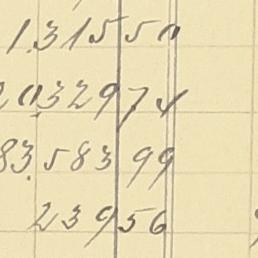 1.315 50
20.329 74
83.583 99
239 56